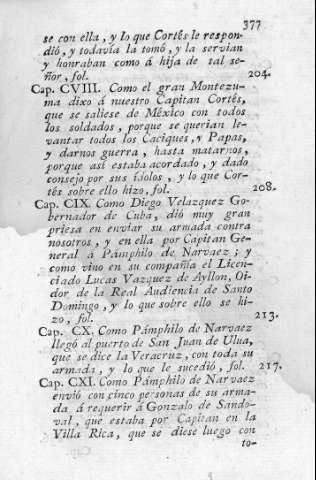 377
se con ella, y lo que Cortés le respon-
dió, y todavía la tomó, y la servian
y honraban como á hija de tal se-
ñor, fol. 204.
Cap. CVIII. Como el gran Montezu-
ma dixo á nuestro Capitan Cortés,
que se saliese de México con todos
los soldados, porque se querian le-
vantar todos los Caciques, y Papas,
y darnos guerra, hasta matarnos,
porque así estaba acordado, y dado
consejo por sus ídolos, y lo que Cor-
tés sobre ello hizo, fol. 208.
Cap. CIX. Como Diego Velazquez Go-
bernador de Cuba, dió muy gran
priesa en enviar su armada contra
nosotros, y en ella por Capitan Ge-
neral á Pámphilo de Narvaez; y
como vino en su compañía el Licen-
ciado Lucas Vazquez de Ayllon, Oi-
dor de la Real Audiencia de Santo
Domingo, y lo que sobre ello se hi-
zo, fol. 213.
Cap. CX. Como Pámphilo de Narvaez
llegó al puerto de San Juan de Ulua,
que se dice la Veracruz, con toda su
armada, y lo que le sucedió, fol. 217.
Cap. CXI. Como Pámphilo de Narvaez
envió con cinco personas de su arma-
da á requerir á Gonzalo de Sando-
val, que estaba por Capitan en la
Villa Rica, que se diese luego con
to-